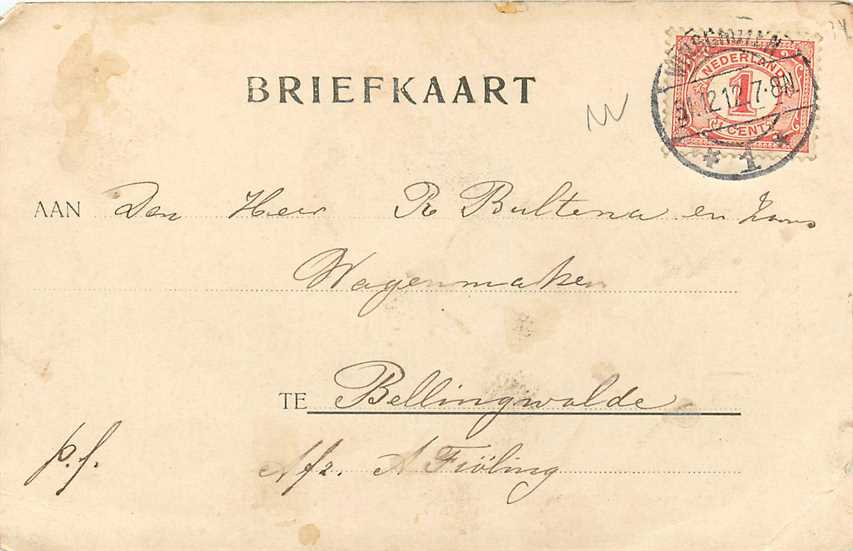 BRIEFKAART
NEDERLAND
1
CENT
31.12.12 7-8N
* 1 *
AAN Den Heer R Bultena en Zoons
Wagenmaker
TE Bellingwolde
p.f. Afz. A Fröling